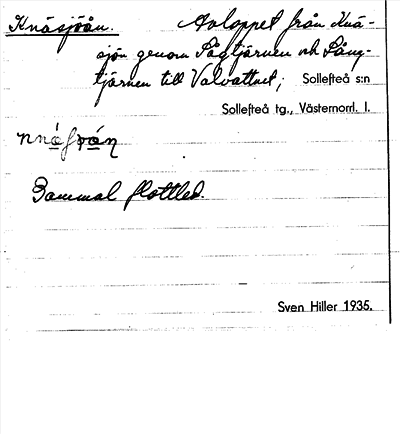 Knäsjöån. Avloppet från Knä-
sjön genom Lågtjärnen och Lång-
tjärnen till Valvattnet; Sollefteå s:n
Sollefteå tg., Västernorrl. l.
Gammal flottled.
Sven Hiller 1935.